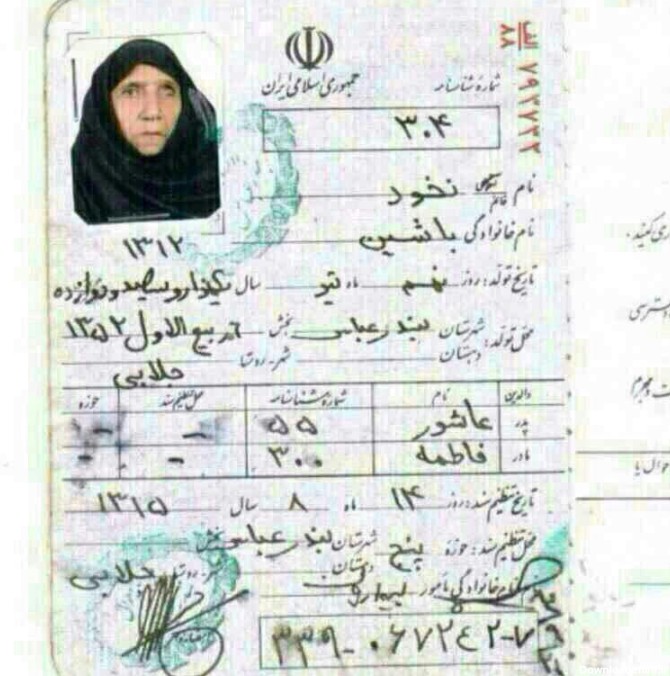 جمهوری اسلامی ایران
شمارهٔ شناسنامه
۳۰۴
نام نخود
نام خانوادگی باشین
۱۳۱۲
تاریخ تولد: روز نهم ماه تیر سال یکهزار و سیصد و دوازده
محل تولد: شهرستان بندرعباس بخش ربیع الاول ۱۳۵۲
دهستان شهر-روستا جلابی
والدین نام شمارهٔ شناسنامه محل تنظیم سند حوزه
پدر عاشور ۵۵ - -
مادر فاطمه ۳۰۰ - -
تاریخ تنظیم سند: روز ۱۴ ماه ۸ سال ۱۳۱۵
محل تنظیم سند: حوزه پنج شهرستان بندرعباس بخش
دهستان شهر-روستا جلابی
نام خانوادگی مأمور
۳۳۹-۰۶۷۲۴۲-۷